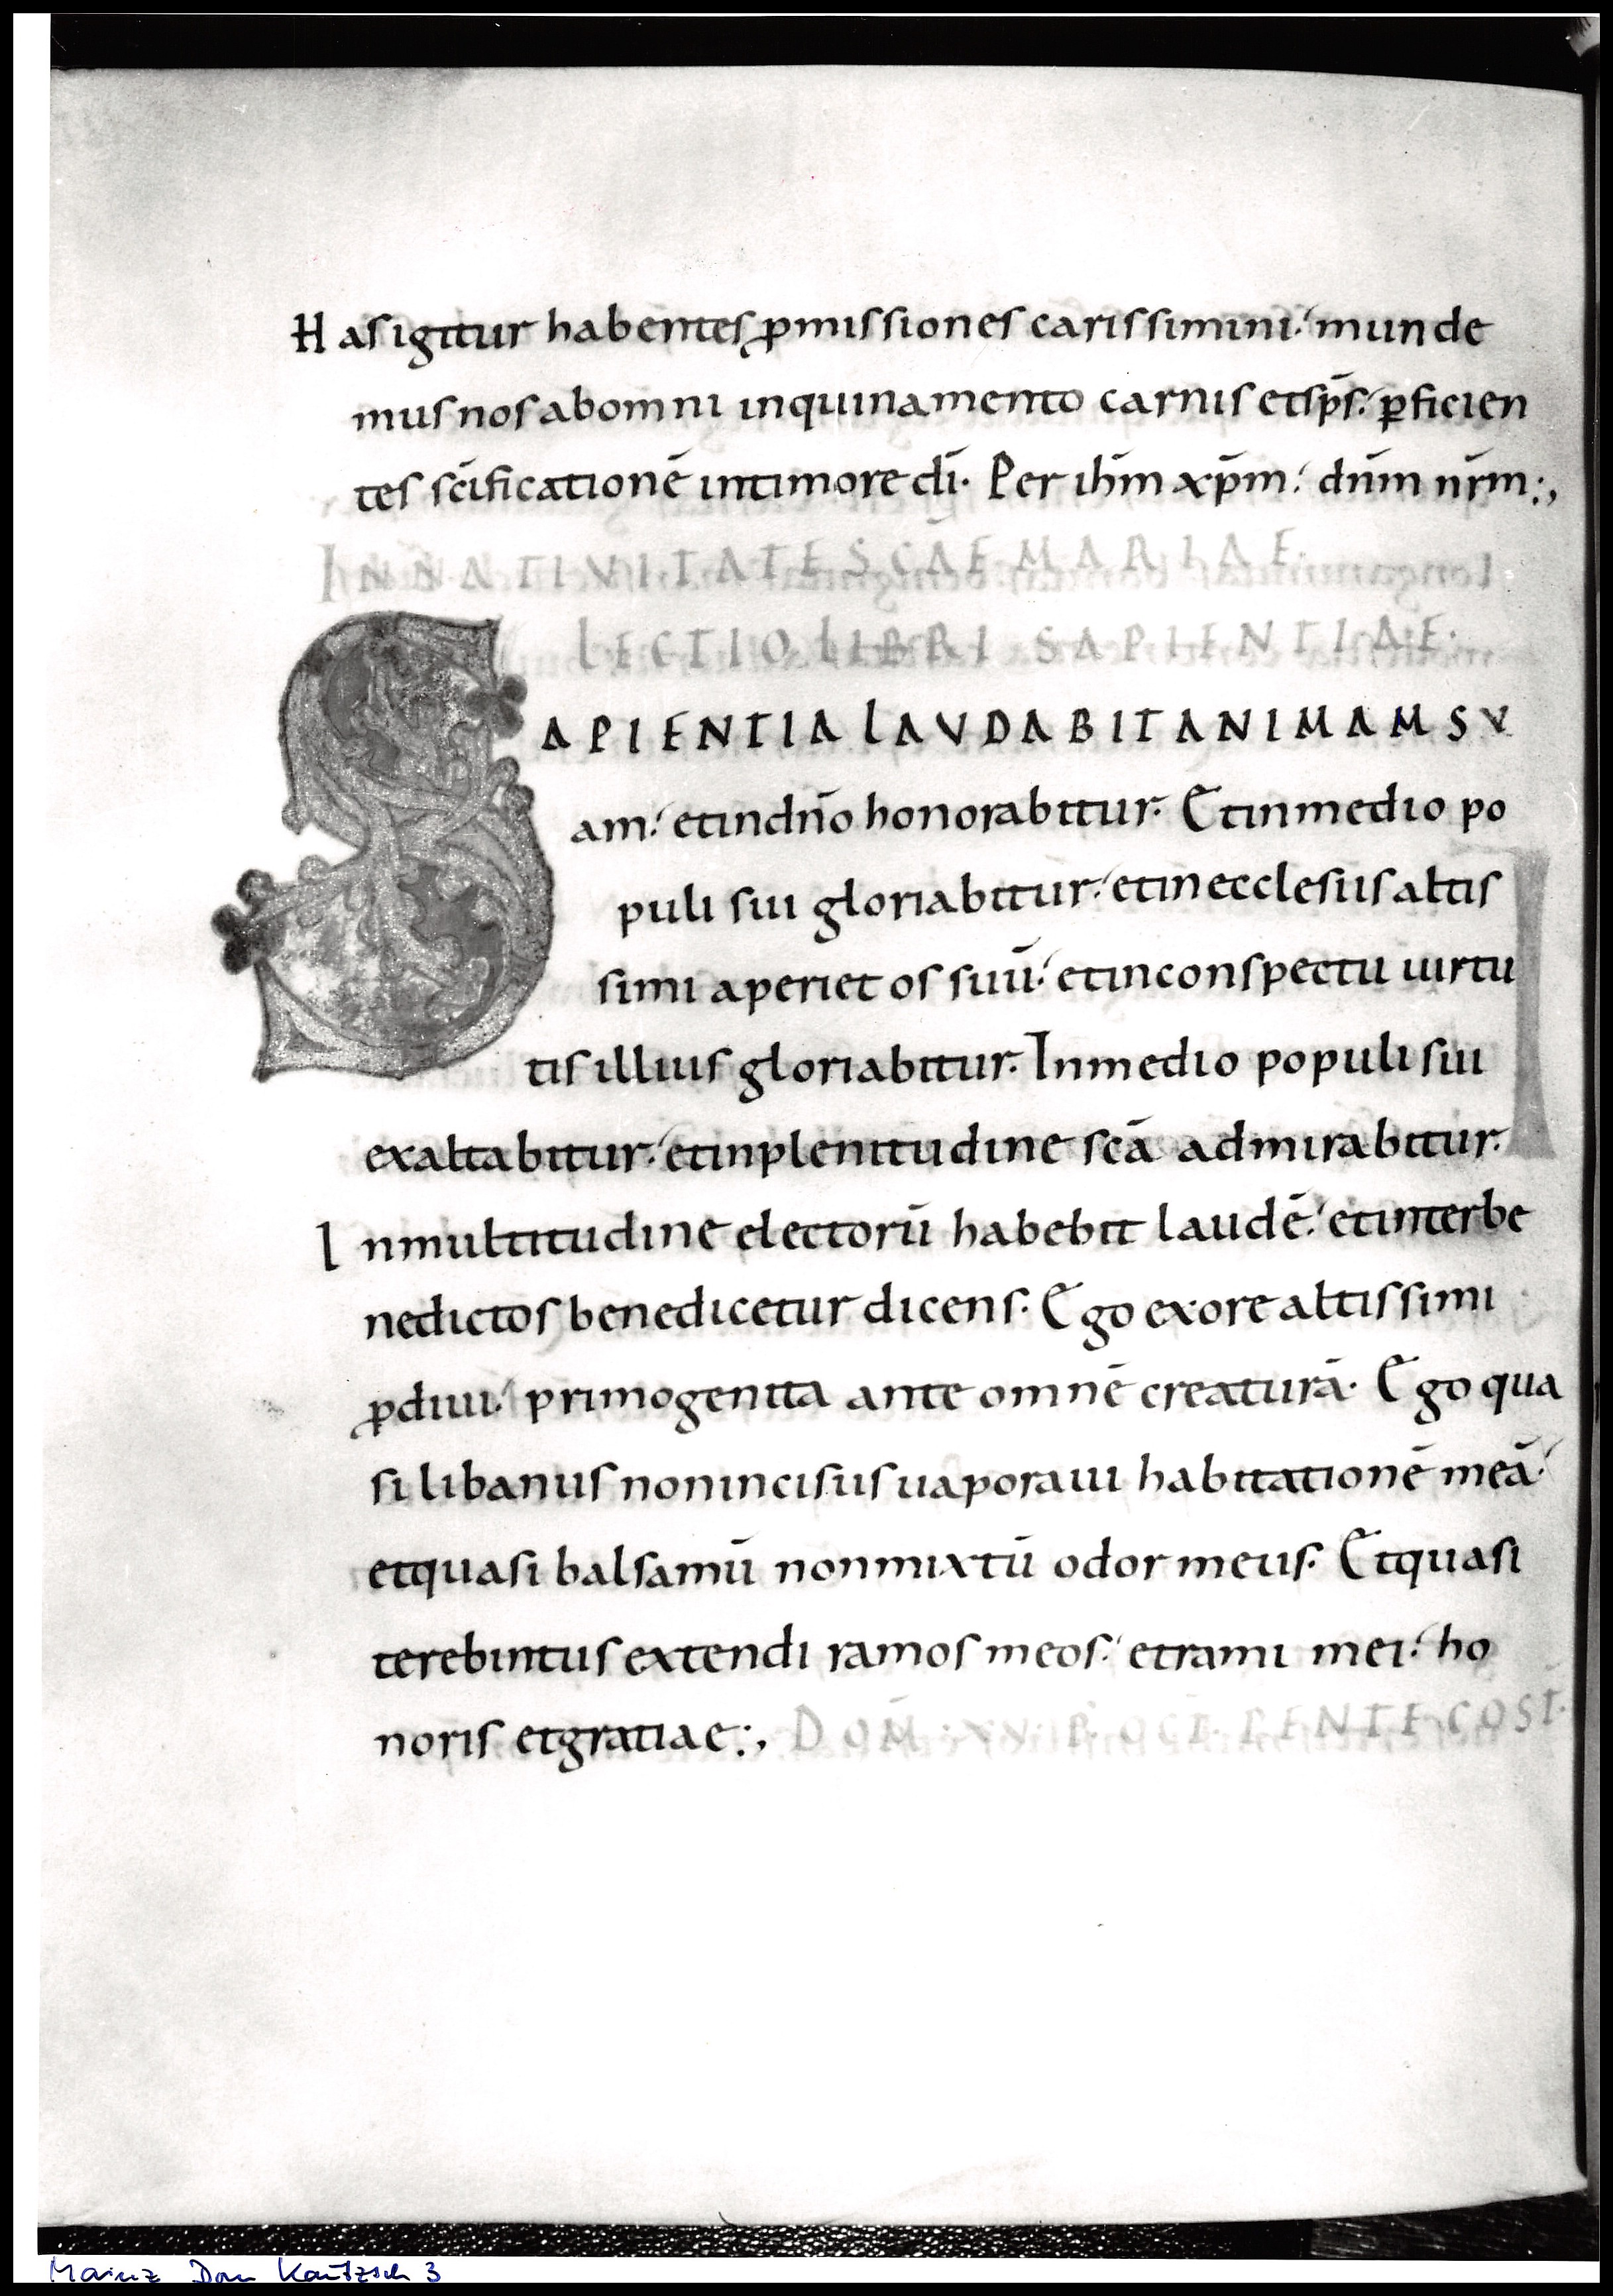 Hasigitur habentes ꝓmissiones carissimini. munde
mus nos abomni inquinamento carnis etsp̄s. ꝑficien
tes sc̄ificationē intimore dī. Per ih̄m xp̄m. dn̄m nr̄m:,
IN NATIVITATE SC̄AE MARIAE.
LECTIO LIBRI SAPIENTIAE.
SAPIENTIA LAVDABIT ANIMAM SV
am. etindn̄o honorabitur. Etinmedio po
puli sui gloriabitur. etinecclesiis altis
simi aperiet os suū. etinconspectu uirtu
tis illius gloriabitur. Inmedio populi sui
exaltabitur. etinplenitudine sc̄a admirabitur.
Inmultitudine electorū habebit laudē. etinterbe
nedictos benedicetur dicens. Ego exore altissimi
ꝓdiui. primogenita ante omnē creaturā. Ego qua
si libanus nonincisus uaporaui habitationē meā.
etquasi balsamū nonmixtū odor meus. Etquasi
terebintus extendi ramos meos. etrami mei. ho
noris etgratiae:, DOM. XV. P. OCT. PENTECOST.
Mainz Dom Kautzsch 3